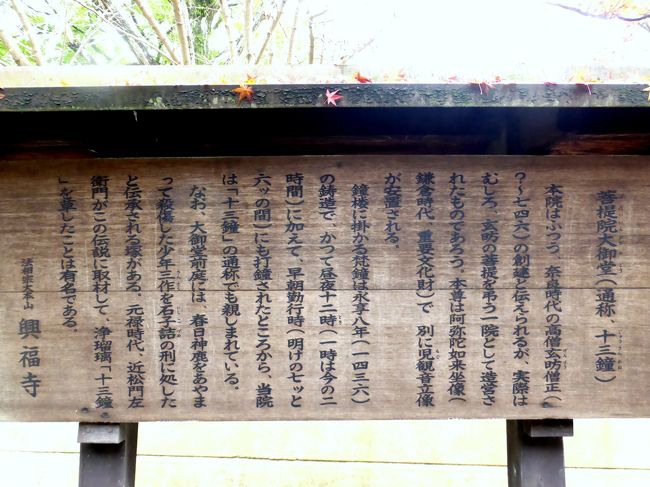 菩提院大御堂(通称、十三鐘)
本院はふつう、奈良時代の高僧玄昉僧正(
?~七四六)の創建と伝えられるが、実際は
むしろ、玄昉の菩提を弔う一院として造営さ
れたものであろう。本尊は阿弥陀如来坐像(
鎌倉時代、重要文化財)で、別に児観音立像
が安置される。
鐘楼に掛かる梵鐘は永享八年(一四三六)
の鋳造で、かつて昼夜十二時(一時は今の二
時間)に加えて、早朝勤行時(明けの七ッと
六ッの間)にも打鐘されたところから、当院
は「十三鐘」の通称でも親しまれている。
なお、大御堂前庭には、春日神鹿をあやま
って殺傷した少年三作を石子詰の刑に処した
と伝承される塚がある。元禄時代、近松門左
衛門がこの伝説に取材して、浄瑠璃「十三鐘
」を草したことは有名である。
法相宗大本山 興福寺